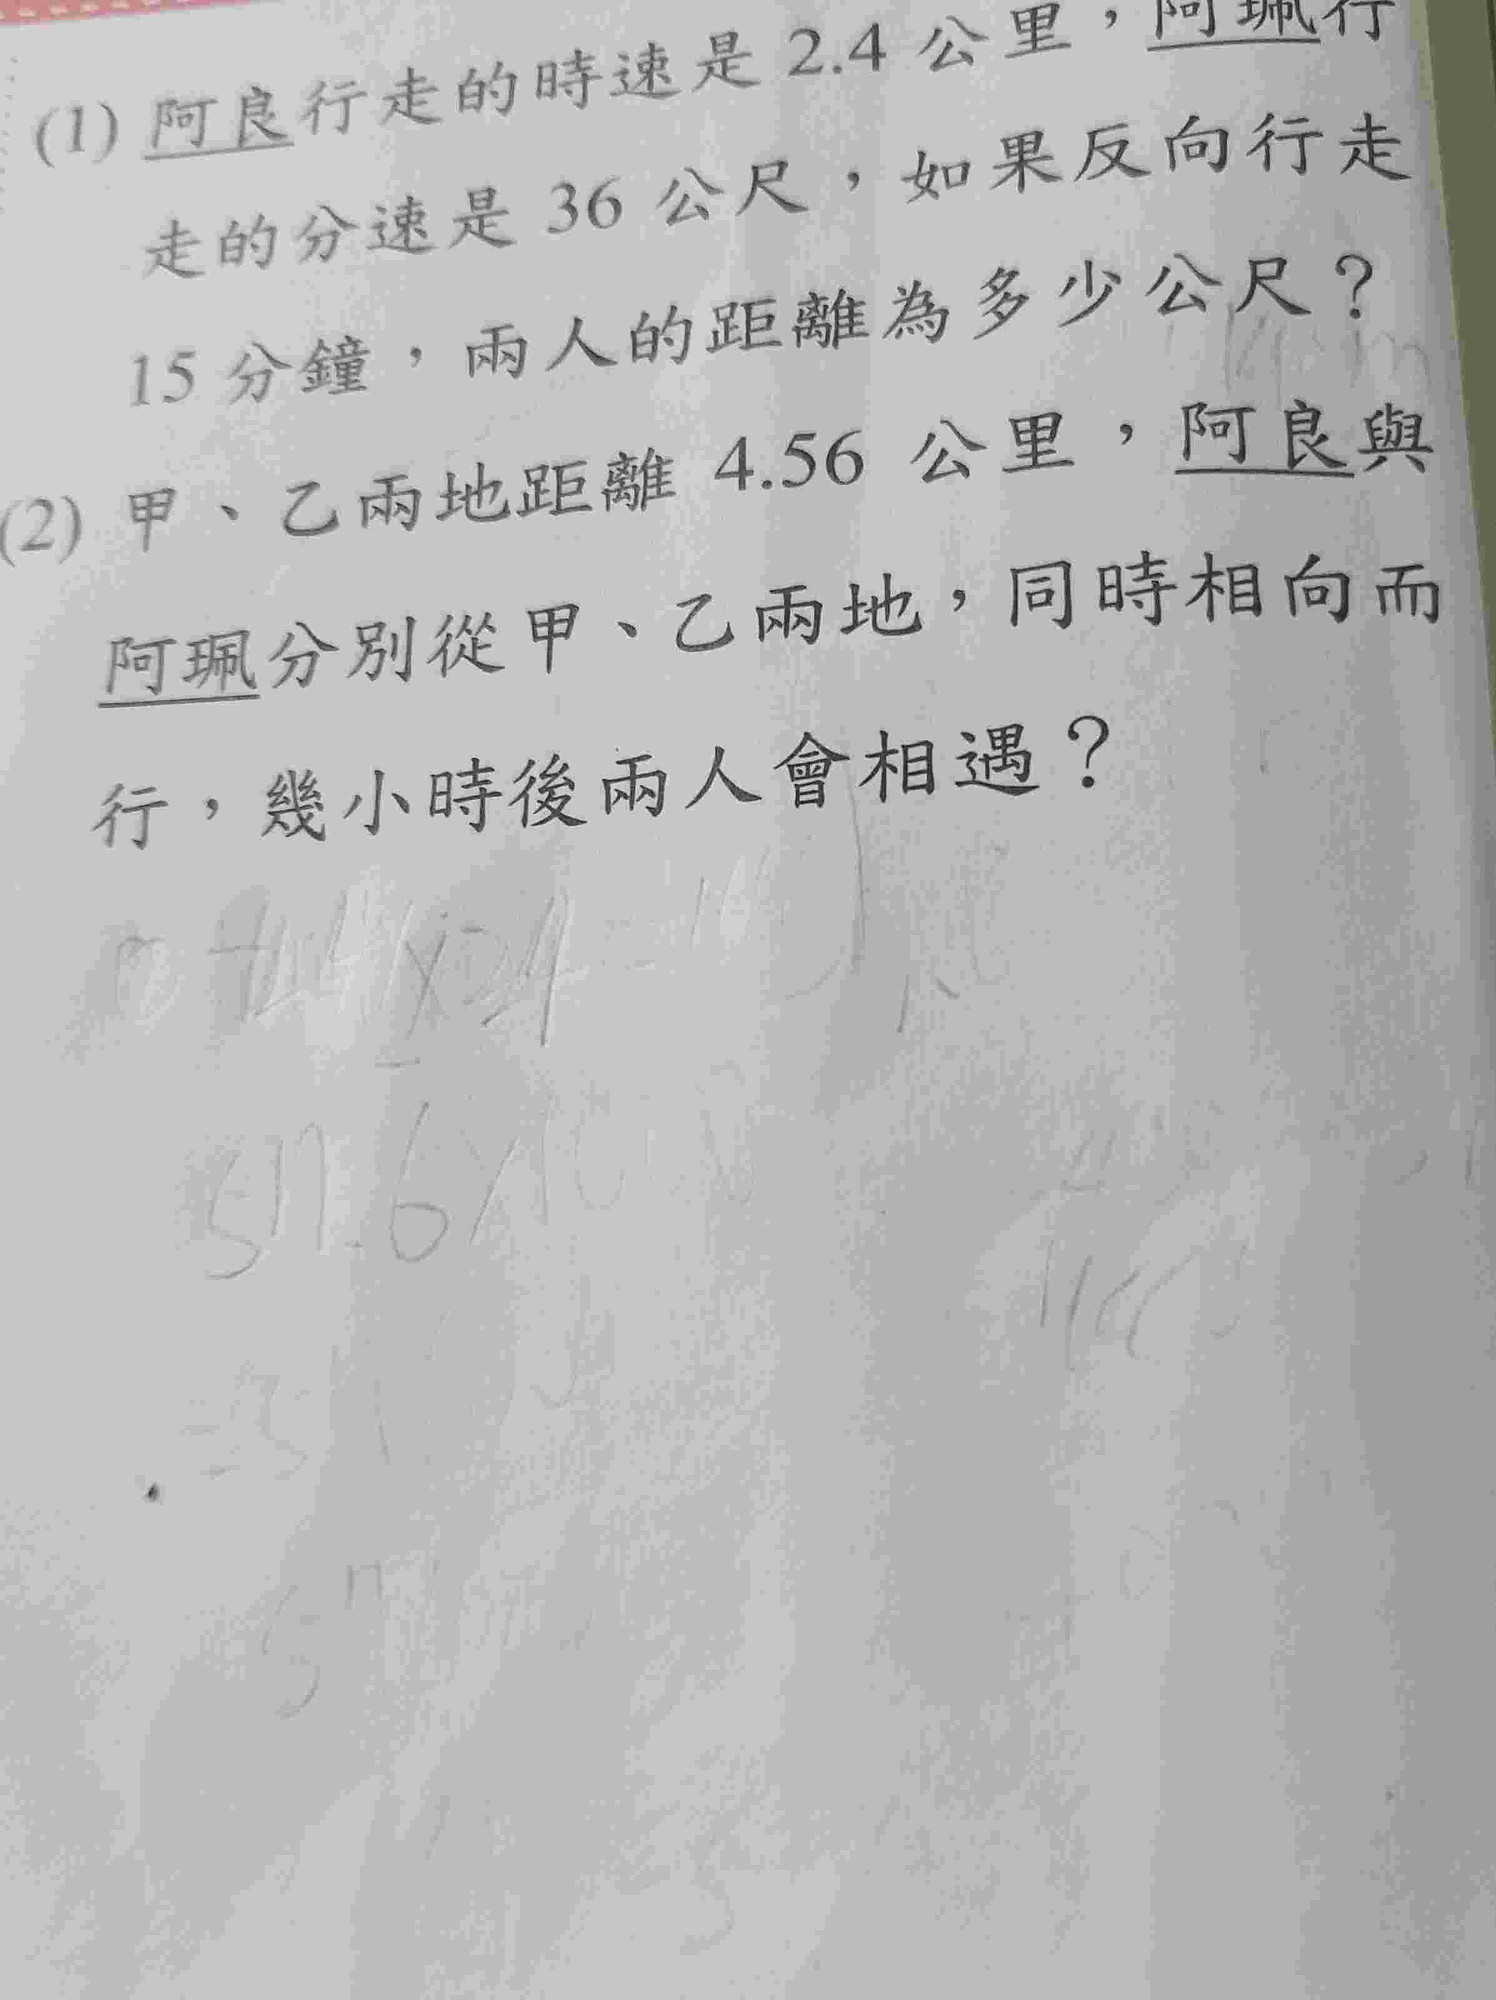 (1) 阿良行走的時速是 2.4 公里，阿珮行
走的分速是 36 公尺，如果反向行走
15 分鐘，兩人的距離為多少公尺？
(2) 甲、乙兩地距離 4.56 公里，阿良與
阿珮分別從甲、乙兩地，同時相向而
行，幾小時後兩人會相遇？